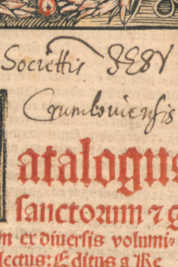 Societtis JESV
Crumloviensis
atalogus
sanctorum ⁊ g
m ex diuersis volumi⸗
lectus: Editus a Re